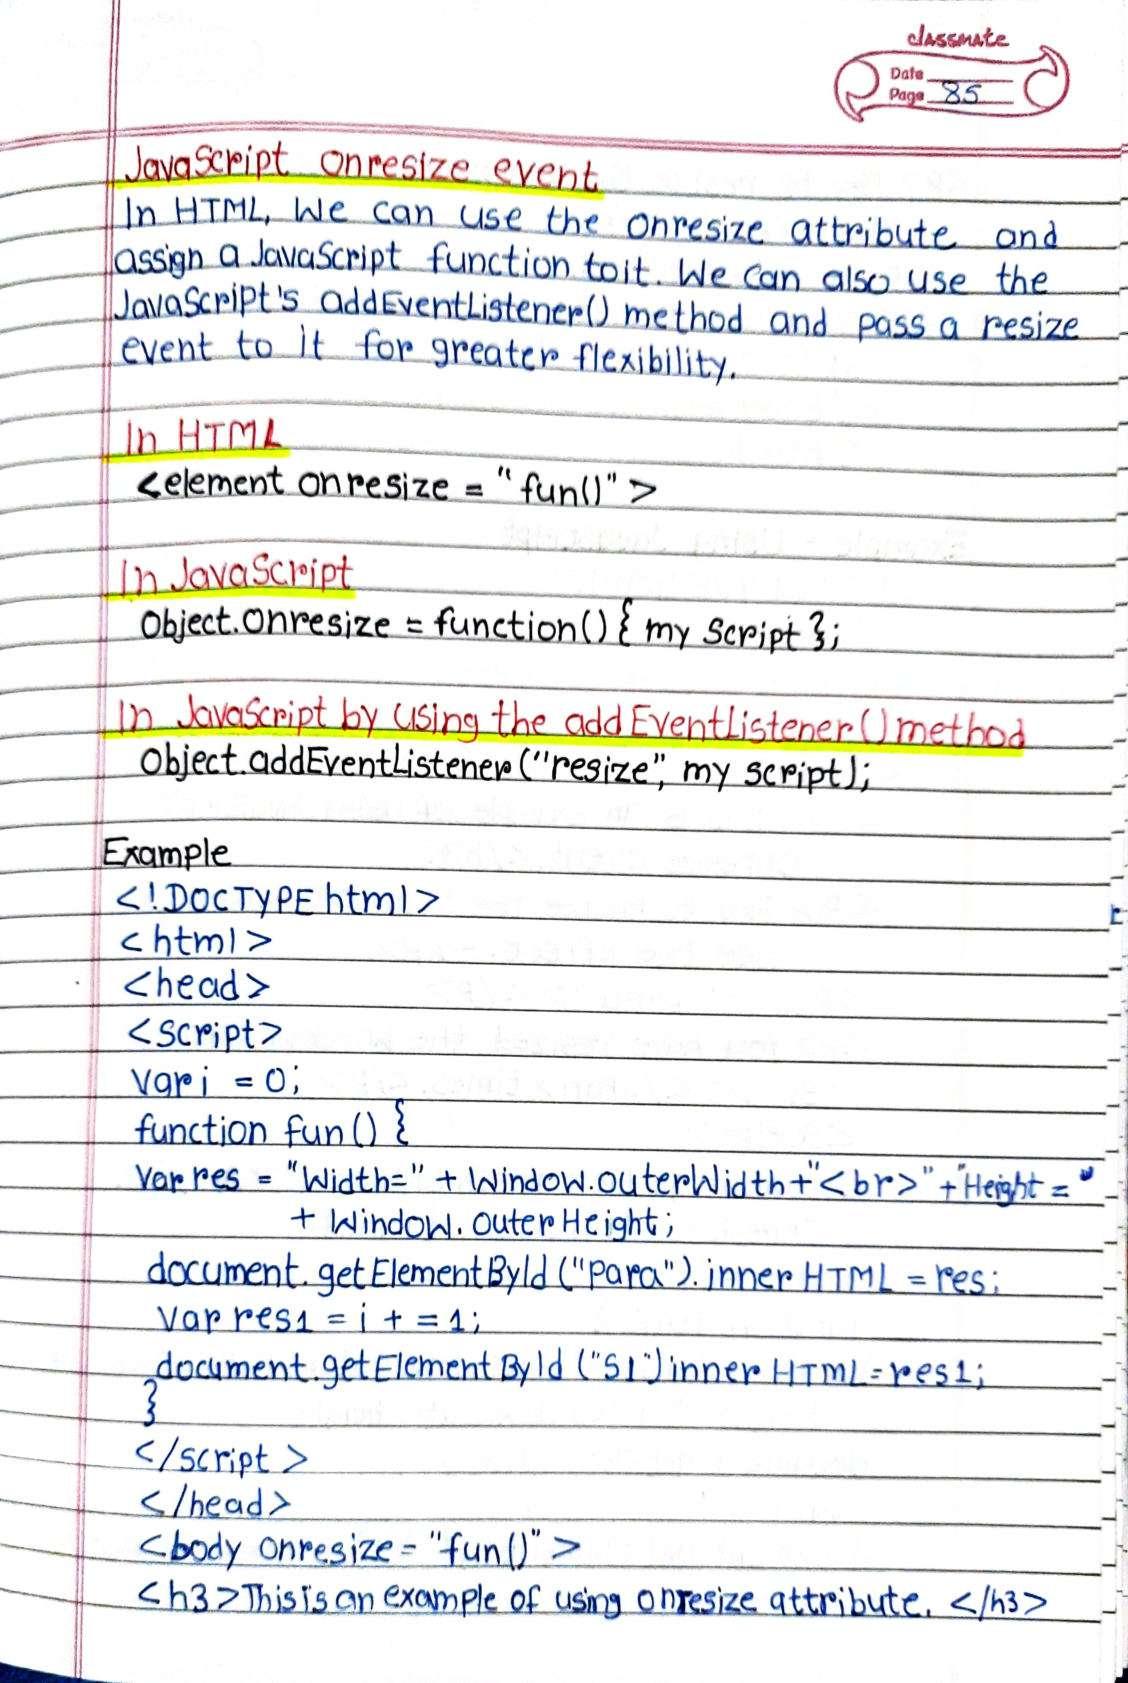 classmate
Date
Page 85
JavaScript onresize event
In HTML, We can use the onresize attribute and
assign a JavaScript function to it. We can also use the
JavaScript's addEventListener() method and pass a resize
event to it for greater flexibility.
In HTML
<element onresize = "fun()">
In JavaScript
Object.onresize = function() { my Script };
In JavaScript by using the addEventListener() method
Object.addEventListener("resize", my script);
Example
<!DOCTYPE html>
<html>
<head>
<script>
Var i = 0;
function fun() {
Var res = "Width=" + Window.outerWidth+"<br>"+"Height="
+ Window.outerHeight;
document.getElementById("para").innerHTML = res;
Var res1 = i + = 1;
document.getElementById ("S1")innerHTML=res1;
}
</script>
</head>
<body onresize = "fun()">
<h3>This is an example of using onresize attribute. </h3>